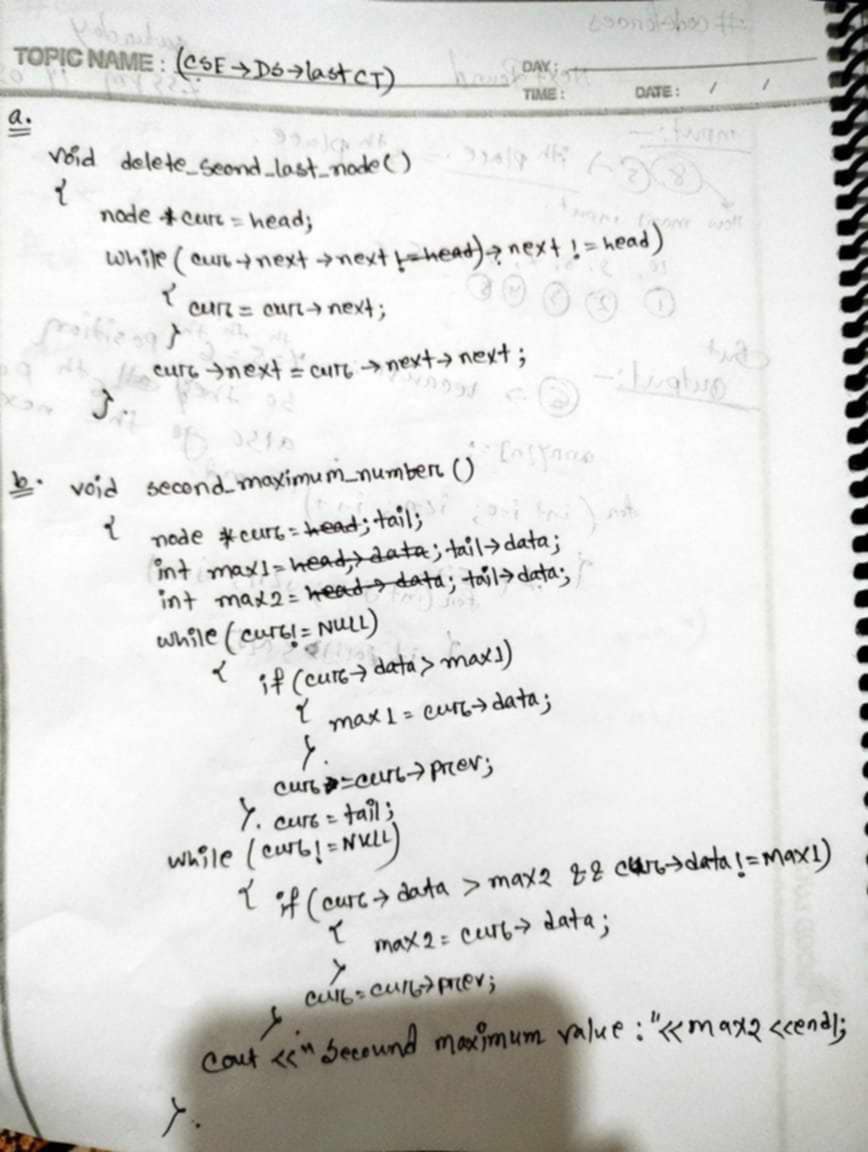 TOPIC NAME : (CSE→DS→last CT) DAY :
TIME : DATE : / /
a.
void delete_seond_last_node()
{
node *curr = head;
while (curr→next→next != head)→next != head)
{
curr = curr→next;
}
curr→next = curr→next→next;
}.
b. void second_maximum_number()
{
node *curr = head; tail;
int max1 = head→data; tail→data;
int max2 = head→data; tail→data;
while (curr != NULL)
{ if (curr→data > max1)
{
max1 = curr→data;
}.
curr = curr→prev;
}. curr = tail;
while (curr != NULL)
{ if (curr→data > max2 && curr→data != max1)
{
max2 = curr→data;
}
curr = curr→prev;
}
cout <<" Secound maximum value :"<<max2 <<endl;
}.